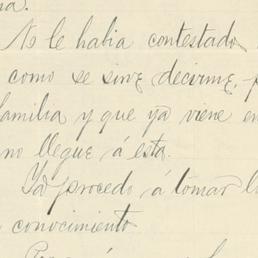 No le habia contestado
como se sirve decirme,
familia y que ya viene
no llegue á esta.
Ya procedo á tomar
conocimiento